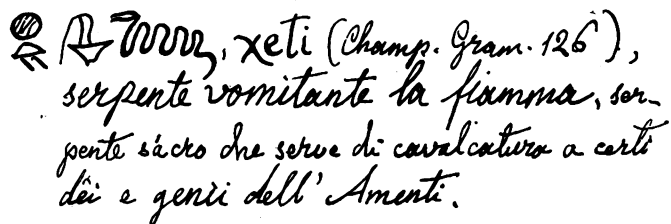 , χeti (Champ. Gram. 126),
serpente vomitante la fiamma, ser-
pente sacro che serve di cavalcatura a certi
dêi e genii dell' Amenti.